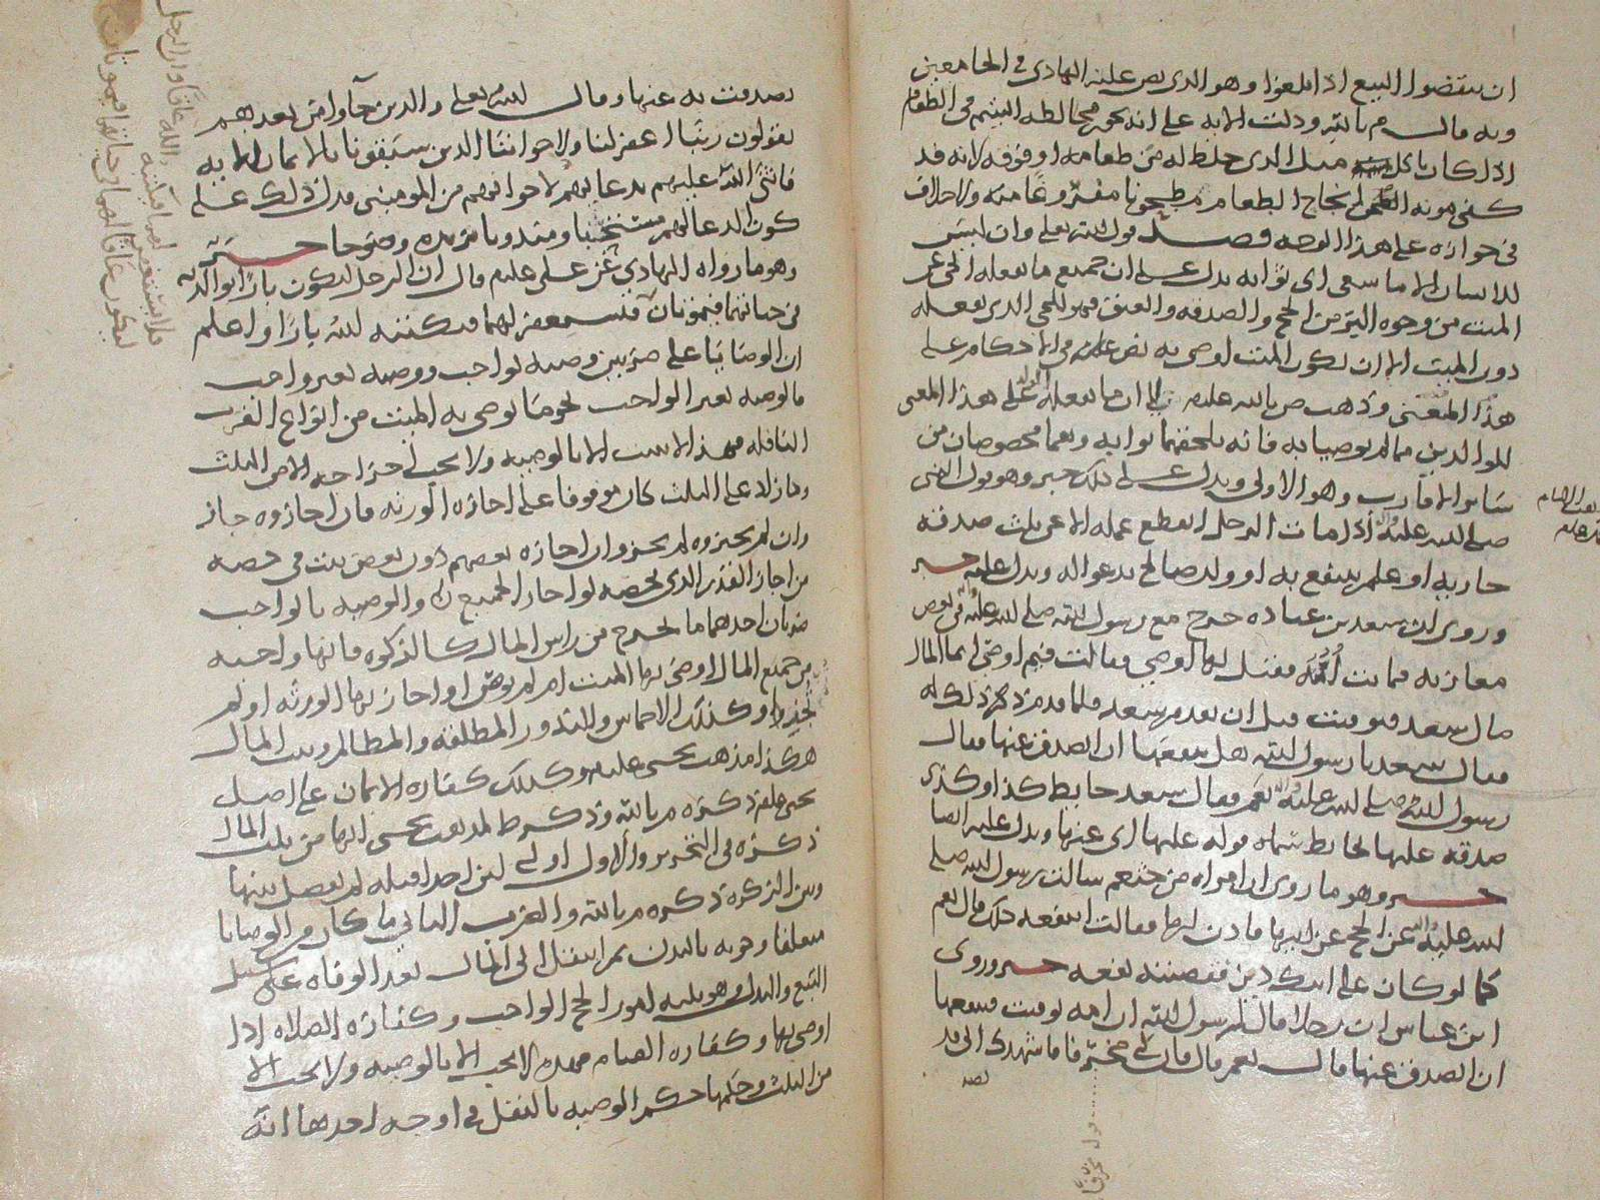 ان ينقضوا البيع اذا بلغوا وهو الذي نص عليه الهادي في الجامعين
وبه قال م بالله ودلت الايه على انه يجوز مخالطه اليتيم في الطعام
اذا كان ياكل مثل الذي خلط له من طعامه او فوقه لانه قد
كفى مونه
في جوازه على هذا الوجه فصل قول الله تعالى وان ليس
للانسان الا ما سعى اى ثوابه يدل على ان جميع ما يفعله الحي عن
الميت من وجوه البر من الحج والصدقه والعتق فهو للحي الذي يفعله
دون الميت الا ان يكون الميت اوصى به نص عليه في الاحكام على
هذا المعنى وذهب ص بالله عليه الى ان ما يفعله الولد على هذا المعنى
للوالدين مما لم يوصيا به فانه يلحقهما ثوابه وهما مخصوصان من
سائر الاقارب وهو الاولى ويدل على ذلك خبر وهو قول النبي
صلى الله عليه واله اذا مات الرجل انقطع عمله الا عن ثلث صدقه
جاريه او علم ينتفع به او ولد صالح يدعو اله ويدل عليه خبر
وروي ان سعد بن عباده خرج مع رسول الله صلى الله عليه واله في بعض
مغازيه فماتت امه فقيل لها اوصي فقالت فيم اوصي انما المال
مال سعد فتوفيت قبل ان يقدم سعد فلما قدم ذكر ذلك له
فقال سعد يا رسول الله هل ينفعها ان اتصدق عنها فقال
رسول الله صلى الله عليه واله نعم فقال سعد حايط كذا وكذى
صدقه عليها لحايط سماه قوله عليها اى عنها ويدل عليه ايضا
خبر وهو ما روى ان امراه من خثعم سالت رسول الله صلى
الله عليه واله عن الحج عن ابيها فاذن لها فقالت اينفعه ذلك قال نعم
كما لو كان على ابيك دين فقضيته نفعه خبر وروى
ابن عباس ان رجلا قال يا رسول الله ان امه توفيت فينفعها
ان اتصدق عنها قال نعم قال فان لي مخرفا فاشهدك اني قد
تصد
تصدقت به عنها وقال الله تعالى والذين جآوا من بعدهم
يقولون ربنا اغفر لنا ولاخواننا الذين سبقونا بالايمان الايه
فاثنى الله عليهم بدعايهم لاخوانهم من المومنين فدل ذلك على
كون الدعا لهم مستحبا ومندوبا خبر
وهو ما رواه الهادي عن علي عليلم قال ان الرجل ليكون بارا بوالديه
في حياتهما فيموتان فلا يستغفر لهما فيكتبه الله واعلم
ان الوصايا على ضربين وصيه لواجب ووصيه بغير واجب
فالوصيه بغير الواجب نحو ما يوصي به الميت من انواع القرب
النافله فهذا لا يثبت الا بالوصيه ولا يجب اخراجه الا من الثلث
وما زاد على الثلث كان موقوفا على اجازه الورثه فان اجازوه جاز
وان لم يجيزوه لم يجز وان اجازه بعضهم دون بعض ثبت في حصه
من اجاز القدر الذي يخصه لو اجاز الجميع والوصيه بالواجب
ضربان احدهما ما يخرج من راس المال كالزكوه فانها واجبه
من جميع المال اوصى بها الميت ام لم يوص او اجاز بها الورثه او لم
يجيزوا وكذلك الاخماس والنذور المطلقه والمظالم وبيت المال
هكذا مذهب يحيى عليلم وكذلك كفاره الايمان على اصل
يحيى عليلم ذكره م بالله وذكر ط لمذهب يحيى انها من ثلث المال
ذكره في التحرير والاول اولى لان احدا قبله لم يفصل بينها
وبين الزكوه ذكره م بالله والضرب الثاني ما كان من الوصايا
متعلقا وجوبه بالبدن ثم انتقل الى المال بعد الوفاه على سبيل
التبع والبدل وهو ثلثه امور الحج الواجب وكفاره الصلاه اذا
اوصى بها وكفاره الصيام فهذه لا يجب الا بالوصيه ولا يجب الا
من الثلث وحكمها حكم الوصيه بالنفل في اوجه احدها انه